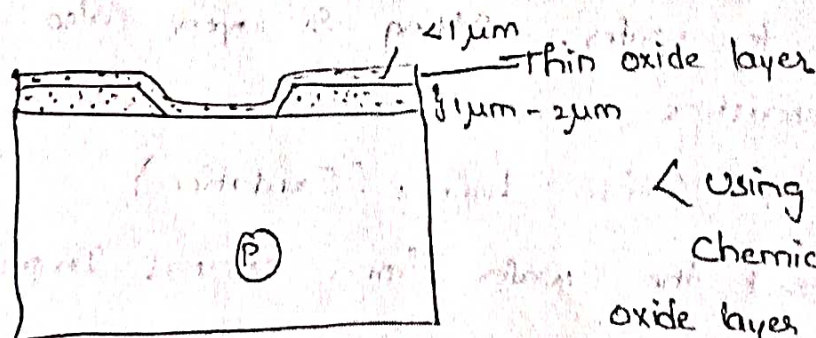 <1μm
Thin oxide layer
1μm - 2μm
< Using
Chemic
oxide layer
P